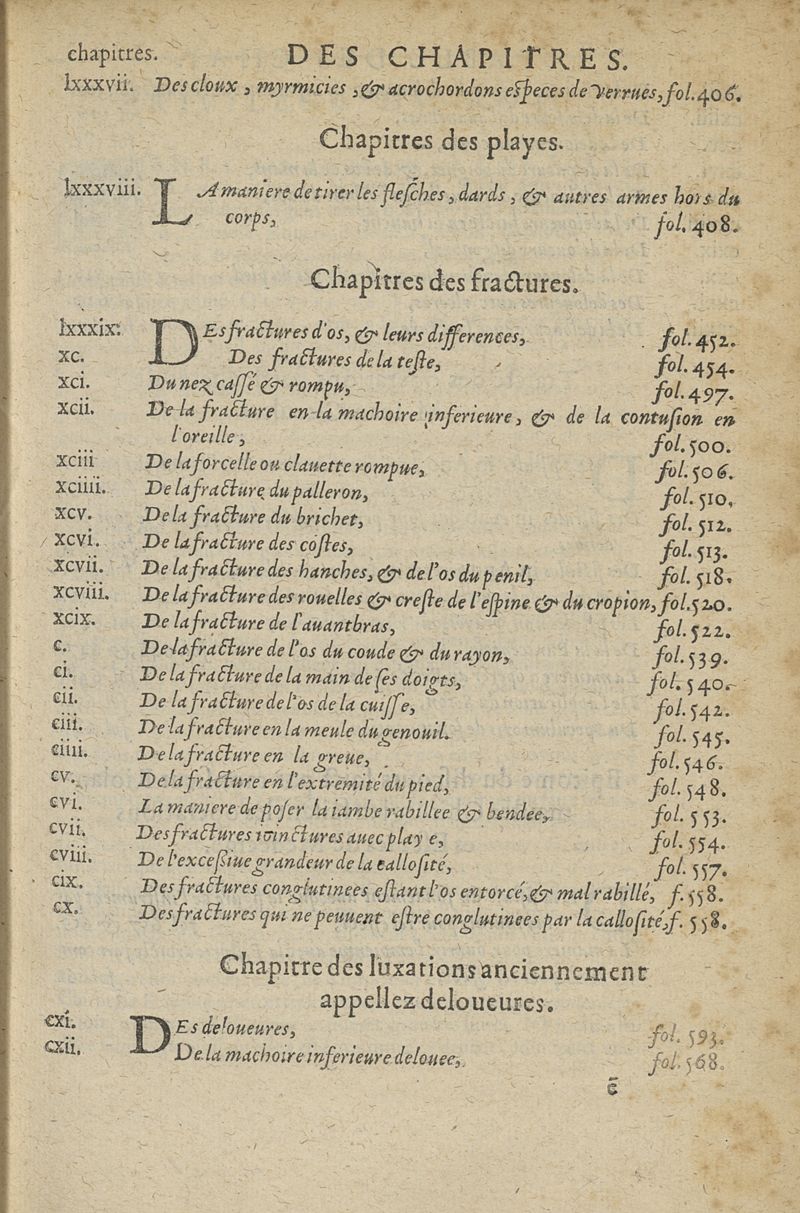 chapitres. DES CHAPITRES.
lxxxvii. Des cloux, myrmicies, & acrochordons eſpeces de verrues, fol. 406.
Chapitres des playes.
lxxxviii. LA maniere de tirer les fleſches, dards, & autres armes hors du
corps, fol. 408.
Chapitres des fractures.
lxxxix. DEs fractures d'os, & leurs differences, fol. 452.
xc. Des fractures de la teſte, fol. 454.
xci. Du nez caſſé & rompu, fol. 497.
xcii. De la fracture en la machoire inferieure, & de la contuſion en
l'oreille, fol. 500.
xciii De la forcelle ou clauette rompue, fol. 506.
xciiii. De la fracture du palleron, fol. 510.
xcv. De la fracture du brichet, fol. 512.
xcvi. De la fracture des coſtes, fol. 513.
xcvii. De la fracture des hanches, & de l'os du penil, fol. 518.
xcviii. De la fracture des rouelles & creſte de l'eſpine & du cropion, fol. 520.
xcix. De la fracture de l'auantbras, fol. 522.
c. De la fracture de l'os du coude & du rayon, fol. 539.
ci. De la fracture de la main de ſes doigts, fol. 540.
cii. De la fracture de l'os de la cuiſſe, fol. 542.
ciii. De la fracture en la meule du genouil. fol. 545.
ciiii. De la fracture en la greue, fol. 546.
cv. De la fracture en l'extremité du pied, fol. 548.
cvi. La maniere de poſer la iambe rabillee & bendee, fol. 553.
cvii. Des fractures ioinctures auec playe, fol. 554.
cviii. De l'exceſſiue grandeur de la calloſité, fol. 557.
cix. Des fractures conglutinees eſtant l'os entorcé, & mal rabillé, f. 558.
cx. Des fractures qui ne peuuent eſtre conglutinees par la calloſité, f. 558.
Chapitre des luxations anciennement
appellez deloueures.
cxi. DEs deloueures, fol. 593.
cxii. De la machoire inferieure delouee, fol. 568.
ē